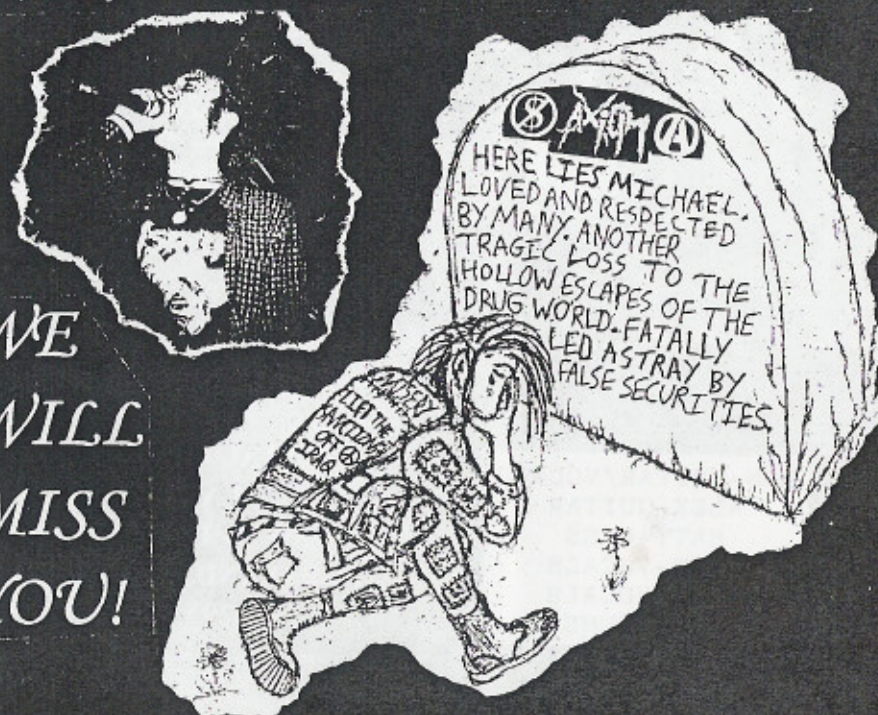 WE
WILL
MISS
YOU!
AXIOM
HERE LIES MICHAEL.
LOVED AND RESPECTED
BY MANY. ANOTHER
TRAGIC LOSS TO THE
HOLLOW ESCAPES OF THE
DRUG WORLD. FATALLY
LED ASTRAY BY
FALSE SECURITIES.